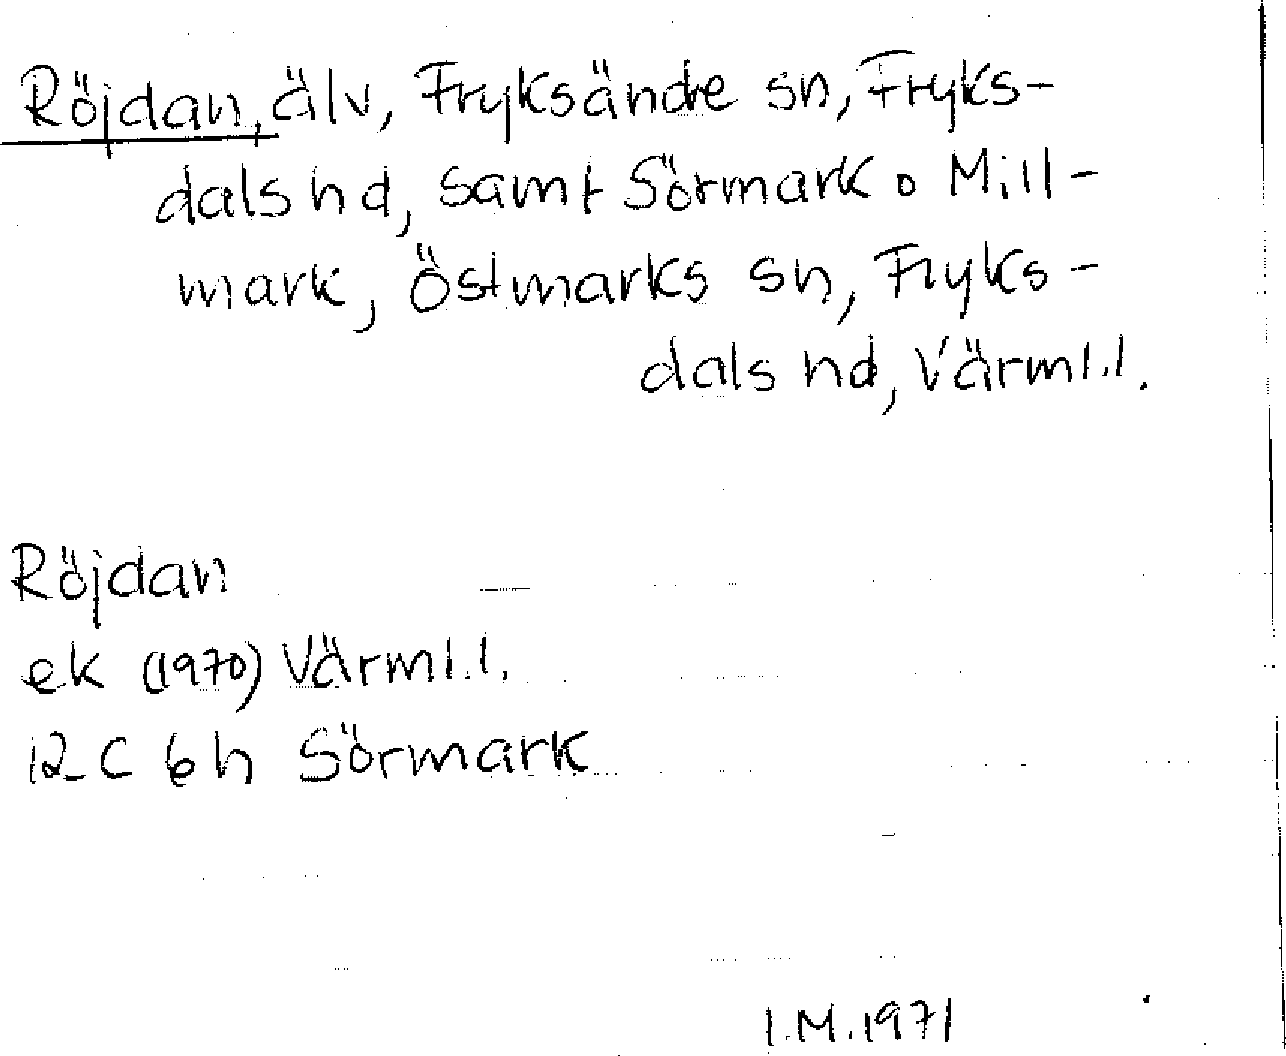 Röjdan, älv, Fryksände sn, Fryks-
dals hd, samt Sörmark o Mill-
mark, Östmarks sn, Fryks-
dals hd, Värml.l.
Röjdan
ek (1970) Värml.l.
12 C 6 h Sörmark
I.M.1971